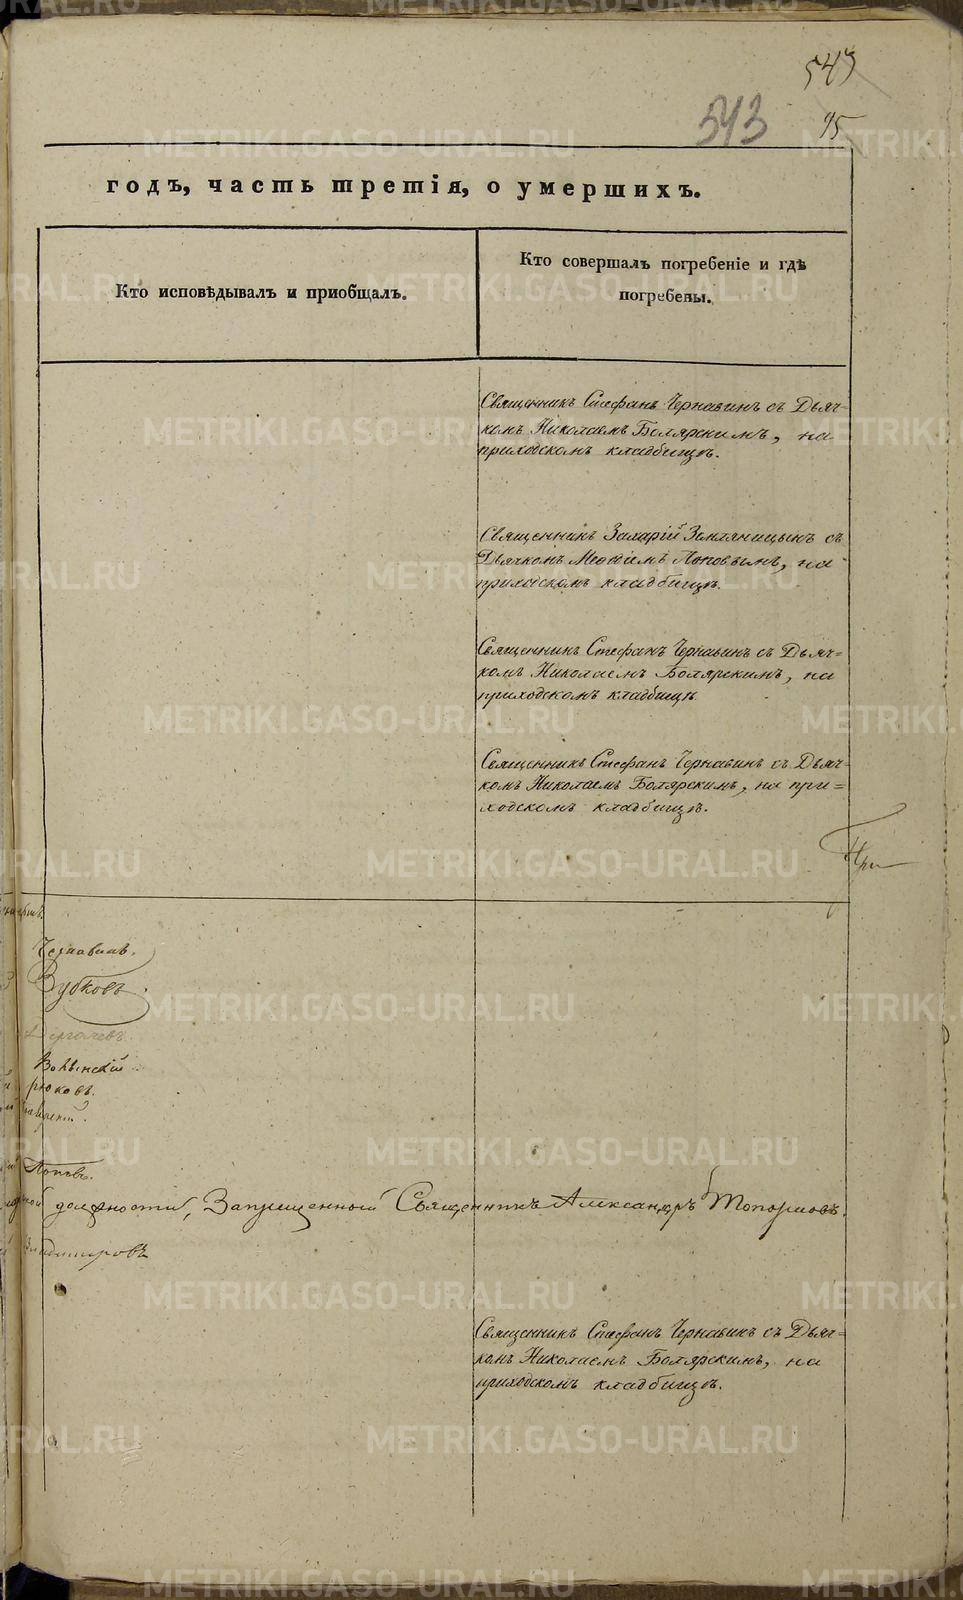 543
543
95
годъ, часть третія, о умершихъ.
Кто исповѣдывалъ и приобщалъ.
Кто совершалъ погребеніе и гдѣ
погребены.
Священникъ Стефанъ Чернавинъ съ Дьяч-
комъ Николаемъ Боляркимъ, на
приходскомъ кладбищѣ.
Священникъ Захарій Земляницынъ съ
Дьячкомъ Меѳодіемъ Поповымъ, на
приходскомъ кладбищѣ.
Священникъ Стефанъ Чернавинъ съ Дьяч=
комъ Николаемъ Болярскимъ, на
приходскомъ кладбищѣ
Священникъ Стефанъ Чернавинъ съ Дьяч-
комъ Николаемъ Болярскимъ, на при=
ходскомъ кладбищѣ.
При
Чернавинъ.
Зубковъ.
Дергачевъ
рюковъ.
Поповъ.
должности, Запрещенный Священникъ Александръ Топорковъ.
Владимировъ
Священникъ Стефанъ Чернавинъ съ Дьяч=
комъ Николаемъ Болярскимъ, на
приходскомъ кладбищѣ.
METRIKI.GASO-URAL.RU